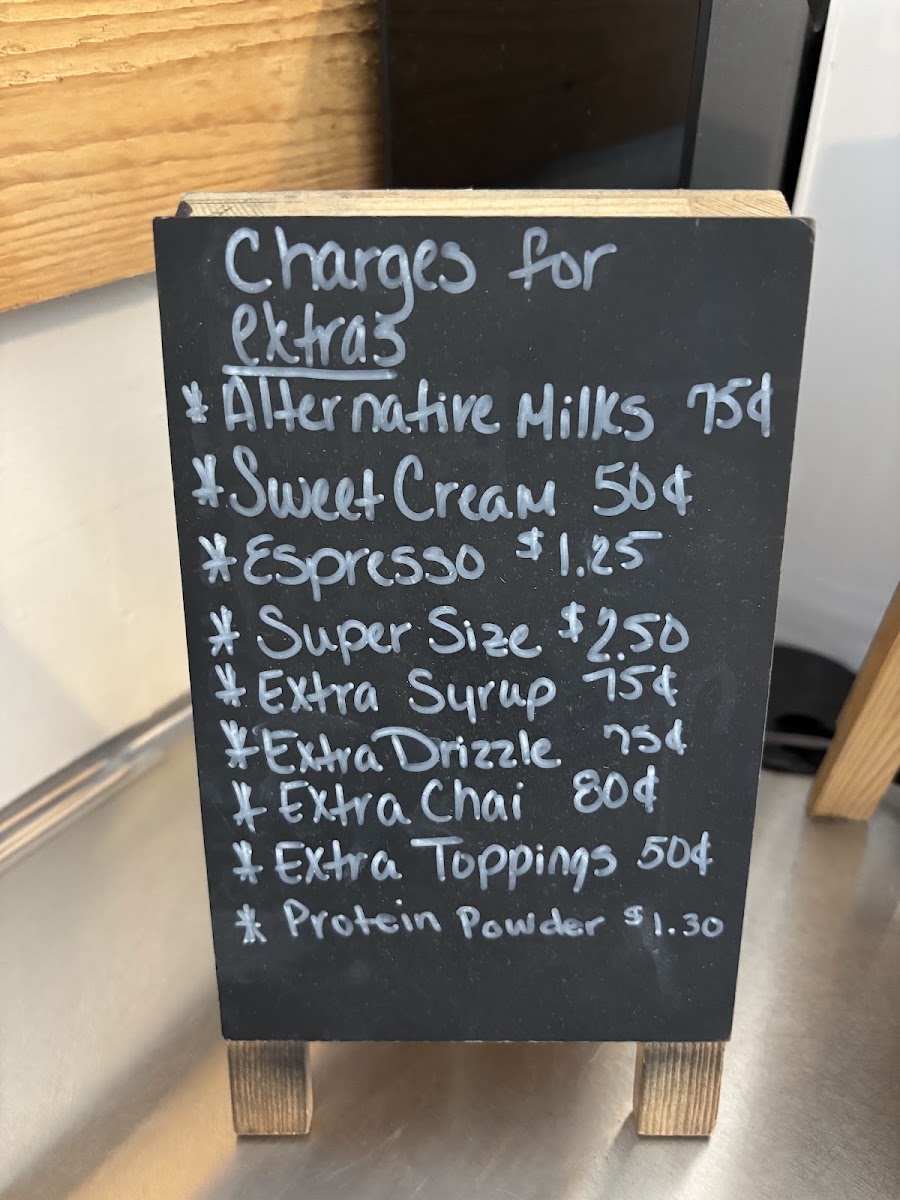 Charges for
extras
* Alternative Milks 75¢
* Sweet Cream 50¢
* Espresso $1.25
* Super Size $2.50
* Extra Syrup 75¢
* Extra Drizzle 75¢
* Extra Chai 80¢
* Extra Toppings 50¢
* Protein Powder $1.30